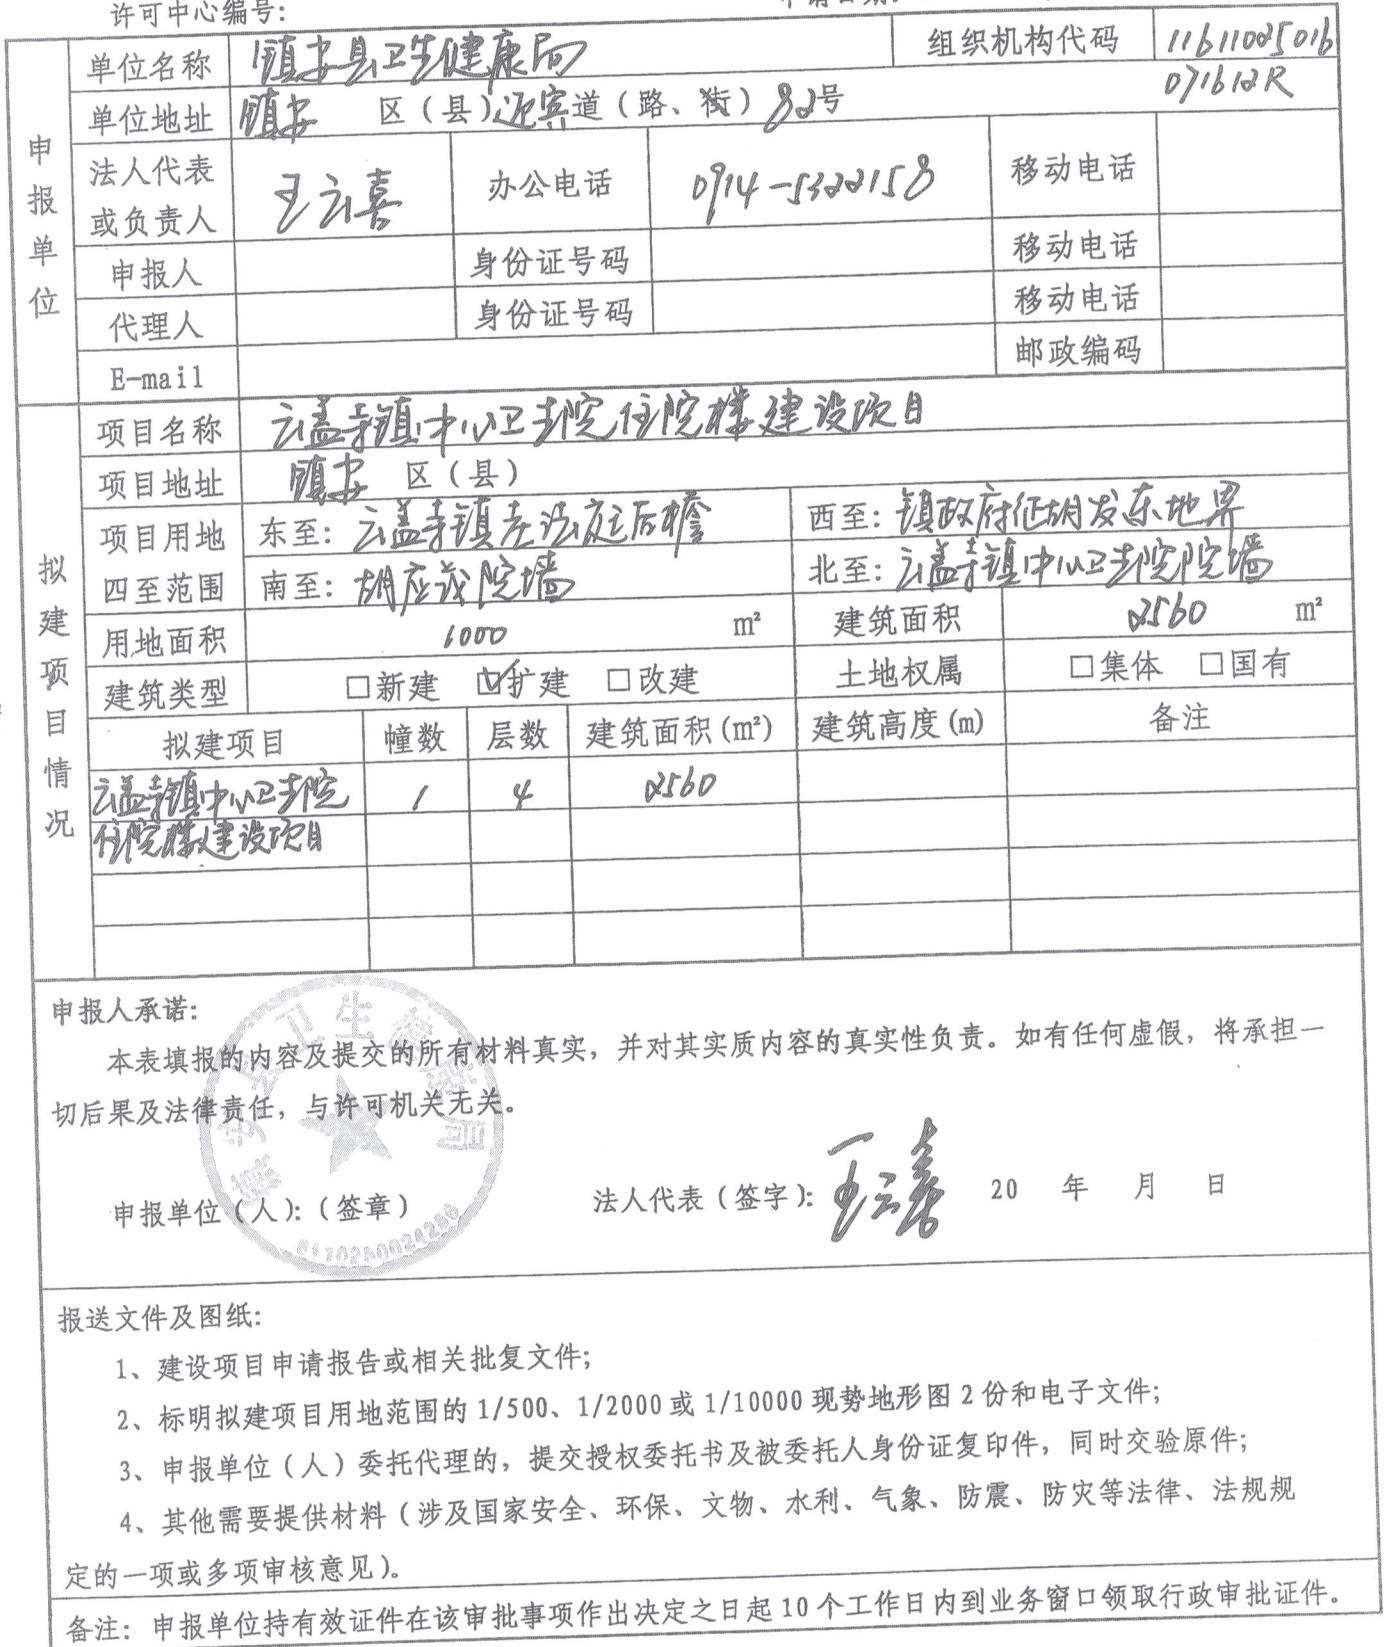 许可中心编号:
申请日期:
申报单位
单位名称 镇安县卫生健康局 组织机构代码 11611025016
071612R
单位地址 镇安 区（县）迎宾道（路、街）82号
法人代表或负责人 王云喜 办公电话 0914-5322158 移动电话
申报人 身份证号码 移动电话
代理人 身份证号码 移动电话
E-mail 邮政编码
拟建项目情况
项目名称 云盖寺镇中心卫生院住院楼建设项目
项目地址 镇安 区（县）
项目用地四至范围 东至: 云盖寺镇老法庭后檐 西至: 镇政府征胡发东地界
南至: 胡应茂院墙 北至: 云盖寺镇中心卫生院院墙
用地面积 1000 m² 建筑面积 2560 m²
建筑类型 □新建 ☑扩建 □改建 土地权属 □集体 □国有
拟建项目 幢数 层数 建筑面积(m²) 建筑高度(m) 备注
云盖寺镇中心卫生院 1 4 2560
住院楼建设项目
申报人承诺:
本表填报的内容及提交的所有材料真实，并对其实质内容的真实性负责。如有任何虚假，将承担一
切后果及法律责任，与许可机关无关。
镇安县卫生健康局
申报单位（人）:（签章） 法人代表（签字）: 王云喜 20 年 月 日
报送文件及图纸:
1、建设项目申请报告或相关批复文件;
2、标明拟建项目用地范围的 1/500、1/2000 或 1/10000 现势地形图 2 份和电子文件;
3、申报单位（人）委托代理的，提交授权委托书及被委托人身份证复印件，同时交验原件;
4、其他需要提供材料（涉及国家安全、环保、文物、水利、气象、防震、防灾等法律、法规规
定的一项或多项审核意见）。
备注: 申报单位持有效证件在该审批事项作出决定之日起 10 个工作日内到业务窗口领取行政审批证件。